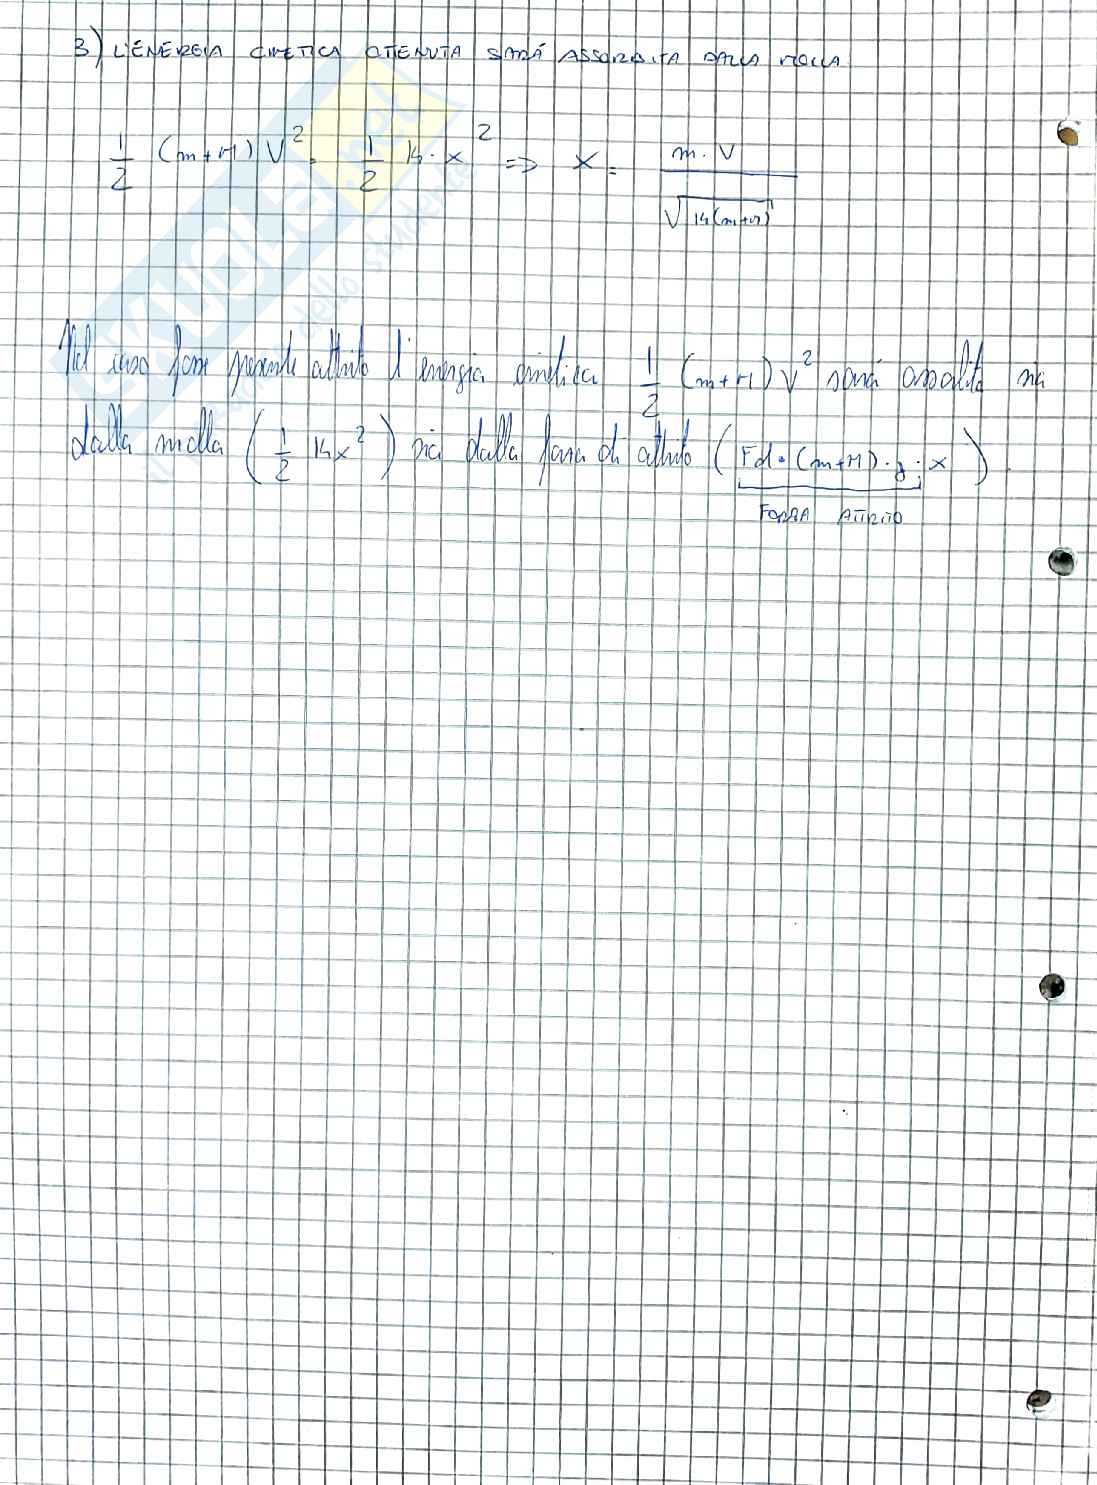 3) L'ENERGIA CINETICA OTTENUTA SARÁ ASSORBITA DALLA MOLLA
1/2 (m+M) V² = 1/2 K · x² => x = m · V / √K(m+M)
Nel caso fosse presente attrito l'energia cinetica 1/2 (m+M) V² sará assorbita sia
dalla molla (1/2 Kx²) sia dalla forza di attrito (Fd · (m+M) · g · x).
FORZA ATTRITO
SKUOLA.net
dello studente